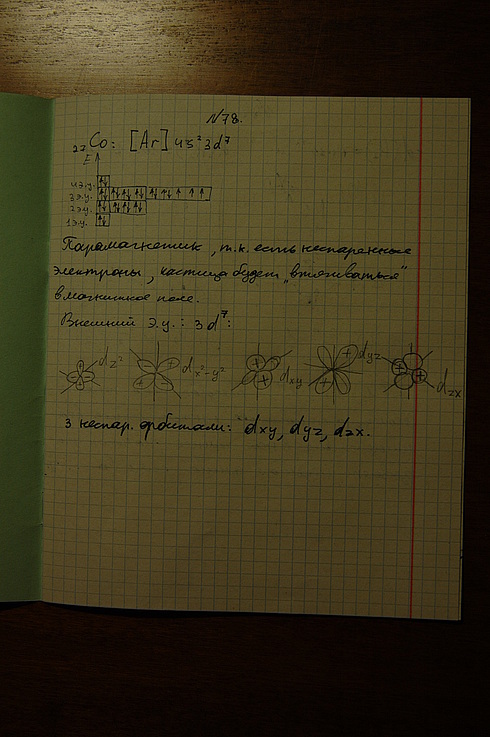 №78.
27Co: [Ar] 4s² 3d⁷
E
4э.у.
3э.у.
2э.у.
1э.у.
Парамагнетик, т.к. есть неспаренные
электроны, частица будет „втягиваться"
в магнитное поле.
Внешний э.у.: 3d⁷:
dz² dx²-y² dxy dyz dzx
3 неспар. орбитали: dxy, dyz, dzx.